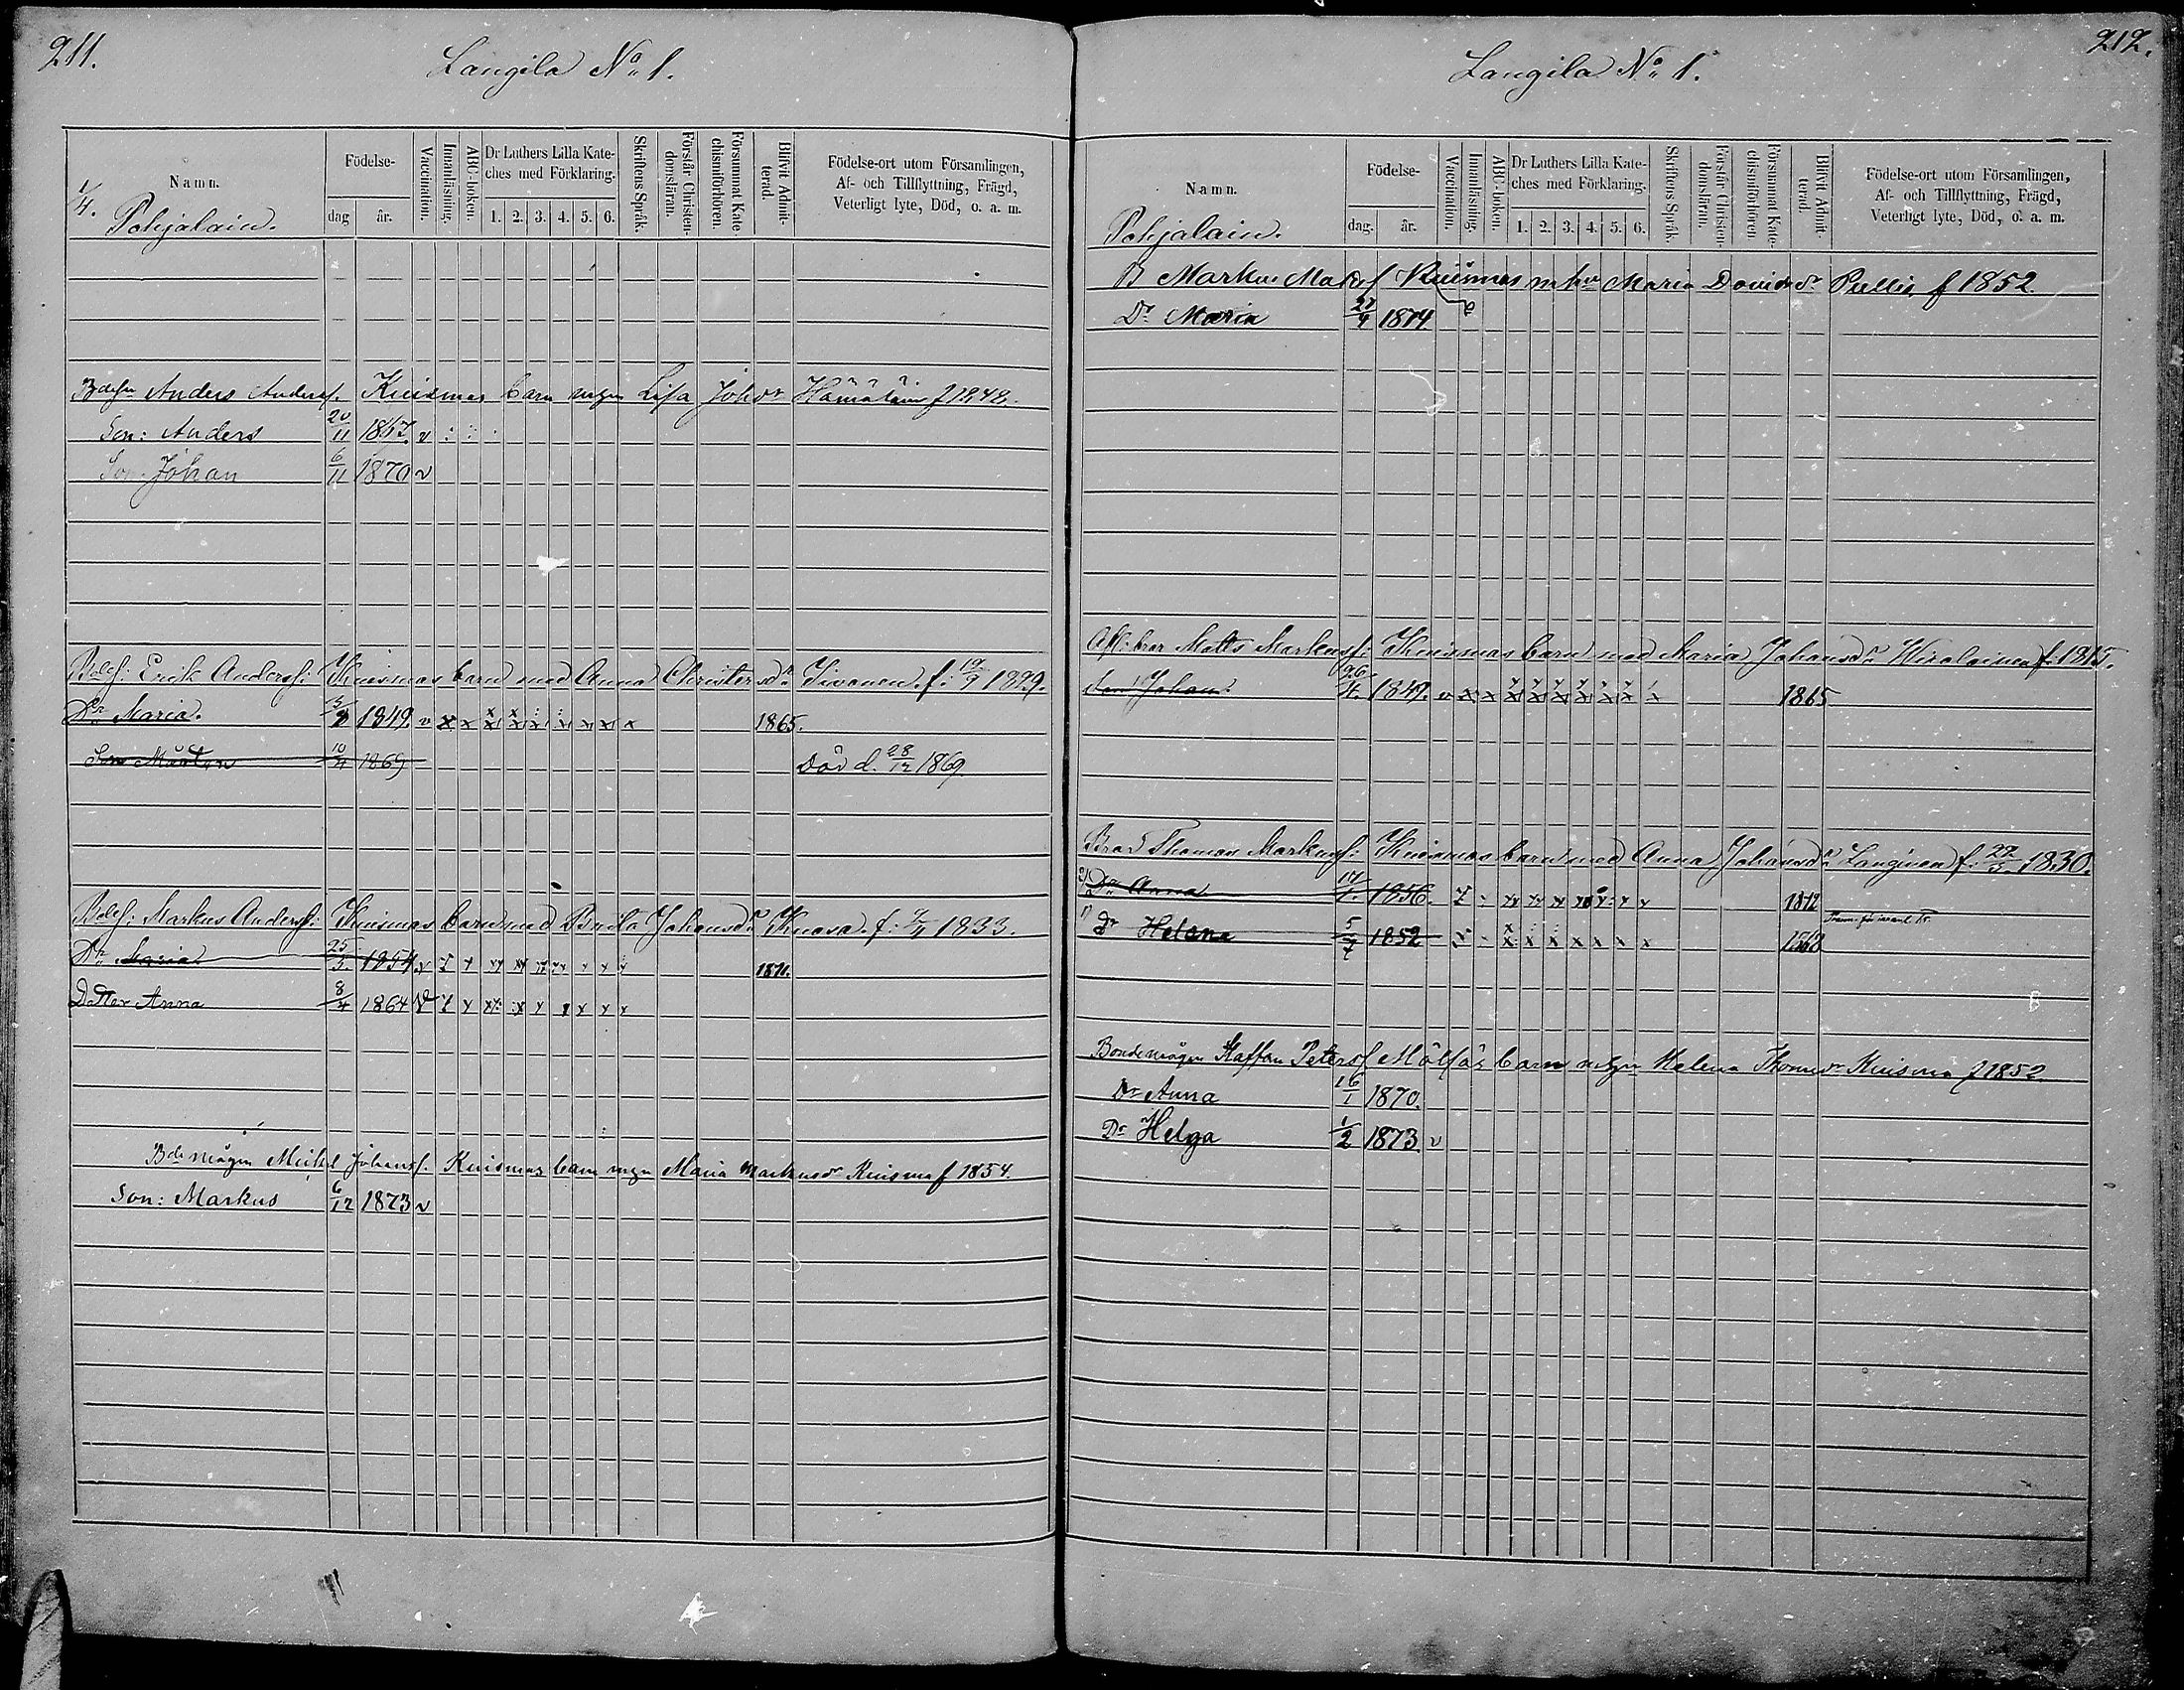 211.
Langila No 1.
Namn.
Födelse-
dag
år.
Vaccination.
Innanläsning.
ABC-boken.
Dr Luthers Lilla Kate-
ches med Förklaring.
1. 2. 3. 4. 5. 6.
Skriftens Språk.
Förstår Christen-
domsläran.
Försummat Kate-
chismiförhören.
Blifvit Admit-
terad.
Födelse-ort utom Församlingen,
Af- och Tillflyttning, Frägd,
Veterligt lyte, Död, o. a. m.
1/4.
Pohjalain.
Anders Andersf. Kuismas barn Lisa Johdr Hämäläin f 1848.
Son: Anders 20/11 1867. v
Son Johan 6/11 1870 v
Bdef: Erik Andersf: Kuismas barn med Anna Christersdr f: 19/9 1829.
Dr Maria. 1849. v x x x x x x x x x 1865.
Son Mårten 10/11 1869 Död d. 28/12 1869
Bdef: Markus Andersf: Kuismas barn med Johansdr Kuosa. f: 1833.
Dr Maria 25/3. 1854 v 1871.
Dotter Anna 8/4 1864 v
Bdemågen Mickel Johansf. Kuismas barn Maria Markusdr Kuisma f 1854.
Son: Markus 6/12 1873 v
212.
Langila No 1.
Namn.
Födelse-
dag.
år.
Vaccination.
Innanläsning.
ABC-boken.
Dr Luthers Lilla Kate-
ches med Förklaring.
1. 2. 3. 4. 5. 6.
Skriftens Språk.
Förstår Christen-
domsläran.
Försummat Kate-
chismiförhören
Blifvit Admit-
terad.
Födelse-ort utom Församlingen,
Af- och Tillflyttning, Frägd,
Veterligt lyte, Död, o. a. m.
Pohjalain.
B Markus Kuismas Maria Davidsdr Pullis f 1852
Dr Maria 1874
Matts Markusf: Kuismas barn med Maria Johansdr f: 1815.
Son Johan. 26/4. 1849. v x x x x x x x x x 1865
Brod Thomas Markusf: Kuismas barn med Anna Johansdr Langinen f: 22/5. 1830.
Dr Anna 17/1. 1856. 1872
Dr Helena 5/7 1852 x x x x x x x 1868
Bondemågen Staffan Petersf Mölsäs barn Helena Thomdr Kuisma f 1852.
Dr Anna 16/1 1870.
Dr Helga 1/2 1873 v